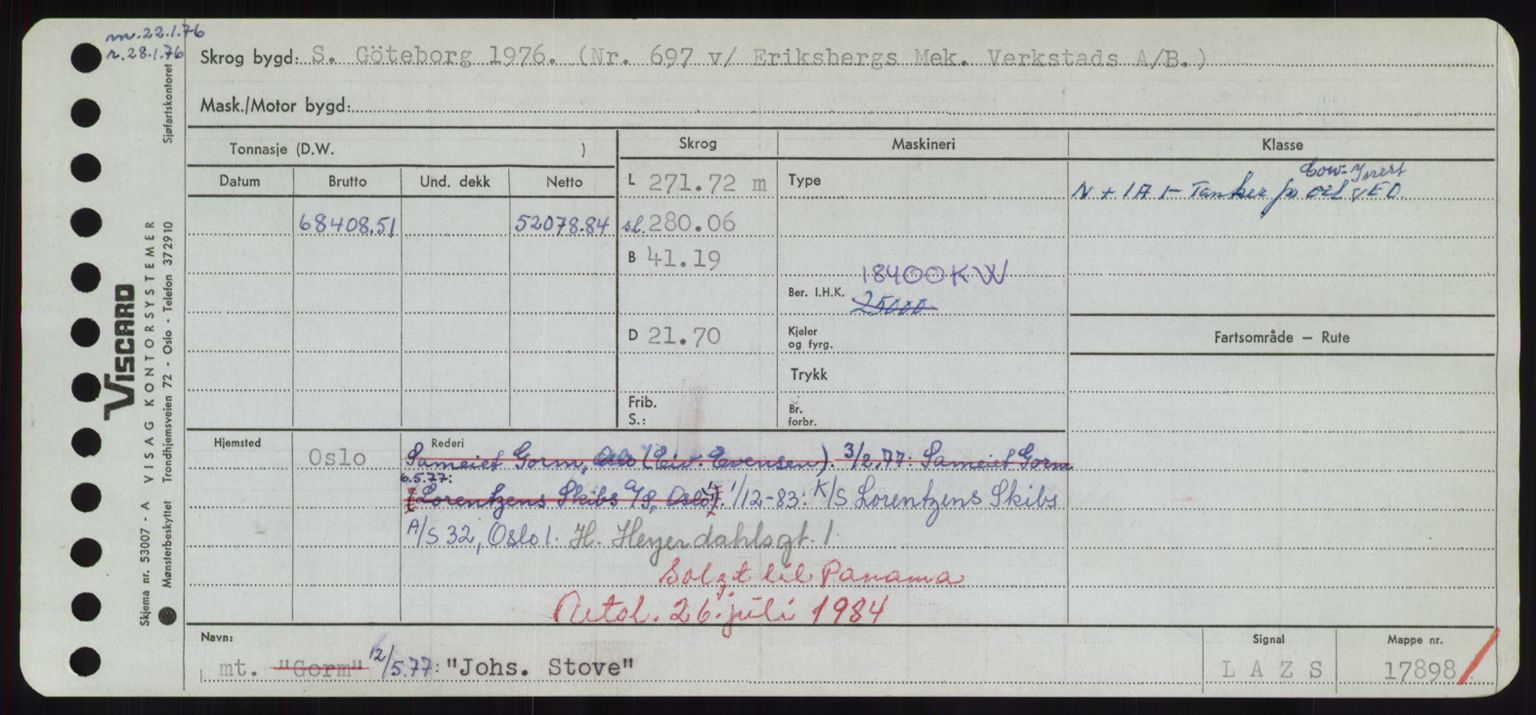 m.22.1.76
r.28.1.76
Skrog bygd: S. Göteborg 1976. (Nr. 697 v/ Eriksbergs Mek. Verkstads A/B.)
Mask./Motor bygd:
Sjøfartskontoret
Tonnasje (D.W. )
Skrog
Maskineri
Klasse
Datum
Brutto
Und. dekk
Netto
L 271.72 m
Type
Cow-Inert
N + 1A 1 - Tanker for oil VEO.
68408.51
52078.84
sl. 280.06
B 41.19
18400 KW
Ber. I.H.K. 25000
D 21.70
Kjeler og fyrg.
Fartsområde — Rute
Trykk
Frib. S.:
Br. forbr.
Hjemsted
Oslo
Rederi
Sameiet Gorm, Oslo (Eiv. Evensen). 3/2.77: Sameiet Gorm
6.5.77:
(Lorentzens Skibs A/S, Oslo 1). 1/12-83: K/S Lorentzens Skibs
A/S 32, Oslo 1. H. Heyerdahlsgt 1.
Solgt til Panama
26. juli 1984
Navn:
mt. "Gorm" 12/5.77: "Johs. Stove"
Signal
L A Z S
Mappe nr.
17898
VISCARD
VISAG KONTORSYSTEMER
Skjema nr. 53007 - A
Mønsterbeskyttet Trondhjemsveien 72 - Oslo - Telefon 372910